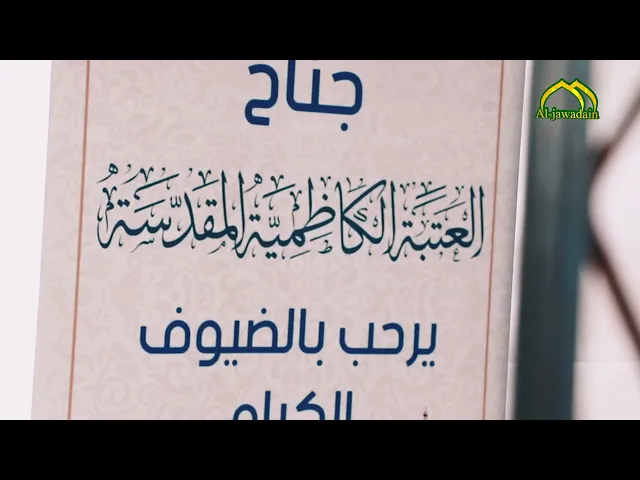 Al-jawadain
جناح
العتبة الكاظمية المقدسة
يرحب بالضيوف
الكرام